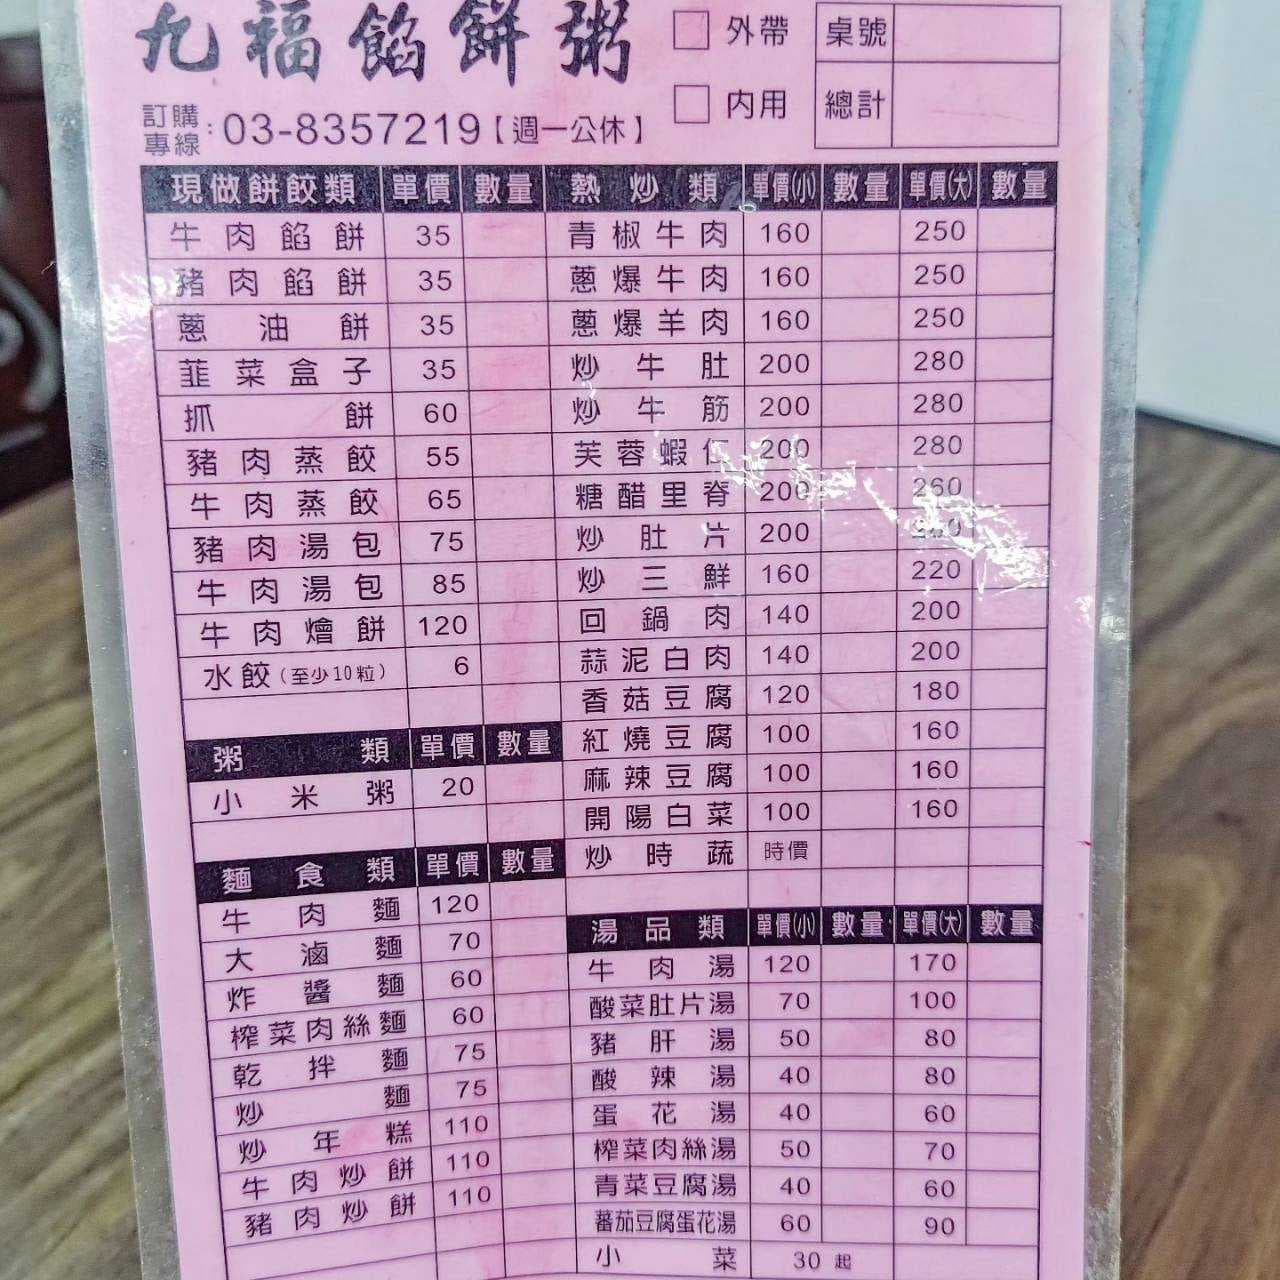 九福餡餅粥
訂購專線:03-8357219【週一公休】
□ 外帶
□ 內用
桌號
總計
現做餅餃類 單價 數量
牛肉餡餅 35
豬肉餡餅 35
蔥油餅 35
韮菜盒子 35
抓餅 60
豬肉蒸餃 55
牛肉蒸餃 65
豬肉湯包 75
牛肉湯包 85
牛肉燴餅 120
水餃(至少10粒) 6
粥類 單價 數量
小米粥 20
麵食類 單價 數量
牛肉麵 120
大滷麵 70
炸醬麵 60
榨菜肉絲麵 60
乾拌麵 75
炒麵 75
炒年糕 110
牛肉炒餅 110
豬肉炒餅 110
熱炒類 單價(小) 數量 單價(大) 數量
青椒牛肉 160 250
蔥爆牛肉 160 250
蔥爆羊肉 160 250
炒牛肚 200 280
炒牛筋 200 280
芙蓉蝦仁 200 280
糖醋里脊 200 260
炒肚片 200
炒三鮮 160 220
回鍋肉 140 200
蒜泥白肉 140 200
香菇豆腐 120 180
紅燒豆腐 100 160
麻辣豆腐 100 160
開陽白菜 100 160
炒時蔬 時價
湯品類 單價(小) 數量 單價(大) 數量
牛肉湯 120 170
酸菜肚片湯 70 100
豬肝湯 50 80
酸辣湯 40 80
蛋花湯 40 60
榨菜肉絲湯 50 70
青菜豆腐湯 40 60
蕃茄豆腐蛋花湯 60 90
小菜 30 起